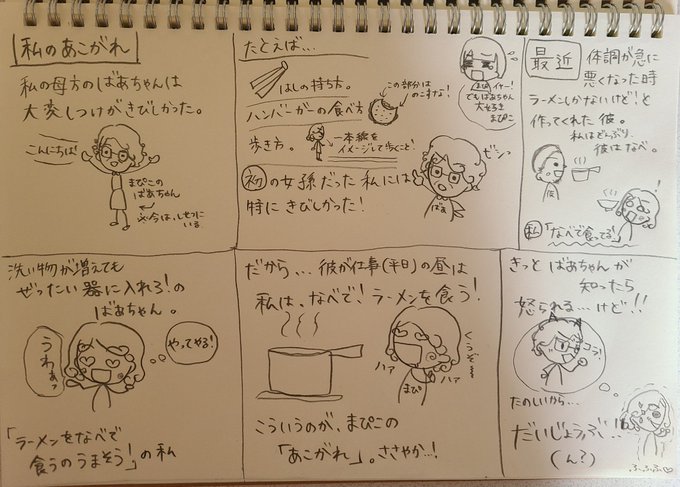 私のあこがれ
私の母方のばあちゃんは
大変しつけがきびしかった。
こんにちは!
まぴこの
ばあちゃん
今は、しせつに
いる
たとえば…
はしの持ち方。
この部分は
のこすな!
ハンバーガーの食べ方
歩き方。
一本線を
イメージして歩くこと
初の女孫だった私には
特にきびしかった!
イヤー!
でもばあちゃん
大好き
まぴこ
ビシッ
ばあ
最近
体調が急に
悪くなった時
ラーメンしかないけど!と
作ってくれた彼。
私はどんぶり、
彼はなべ。
彼
!
私「なべで食ってる!」
洗い物が増えても
ぜったい器に入れろ!の
ばあちゃん。
うわぁッ
やってやる!
「ラーメンをなべで
食うのうまそう!」の私
だから…彼が仕事(平日)の昼は
私は、なべで!ラーメンを食う!
くうぞ
ハァ
ハァ
まぴ
こういうのが、まぴこの
「あこがれ」。ささやか…!
きっとばあちゃんが
知ったら
怒られる…けど!!
コラ!
たのしいから…
だいじょうぶ…!!
(ん?)
ふふふ♡